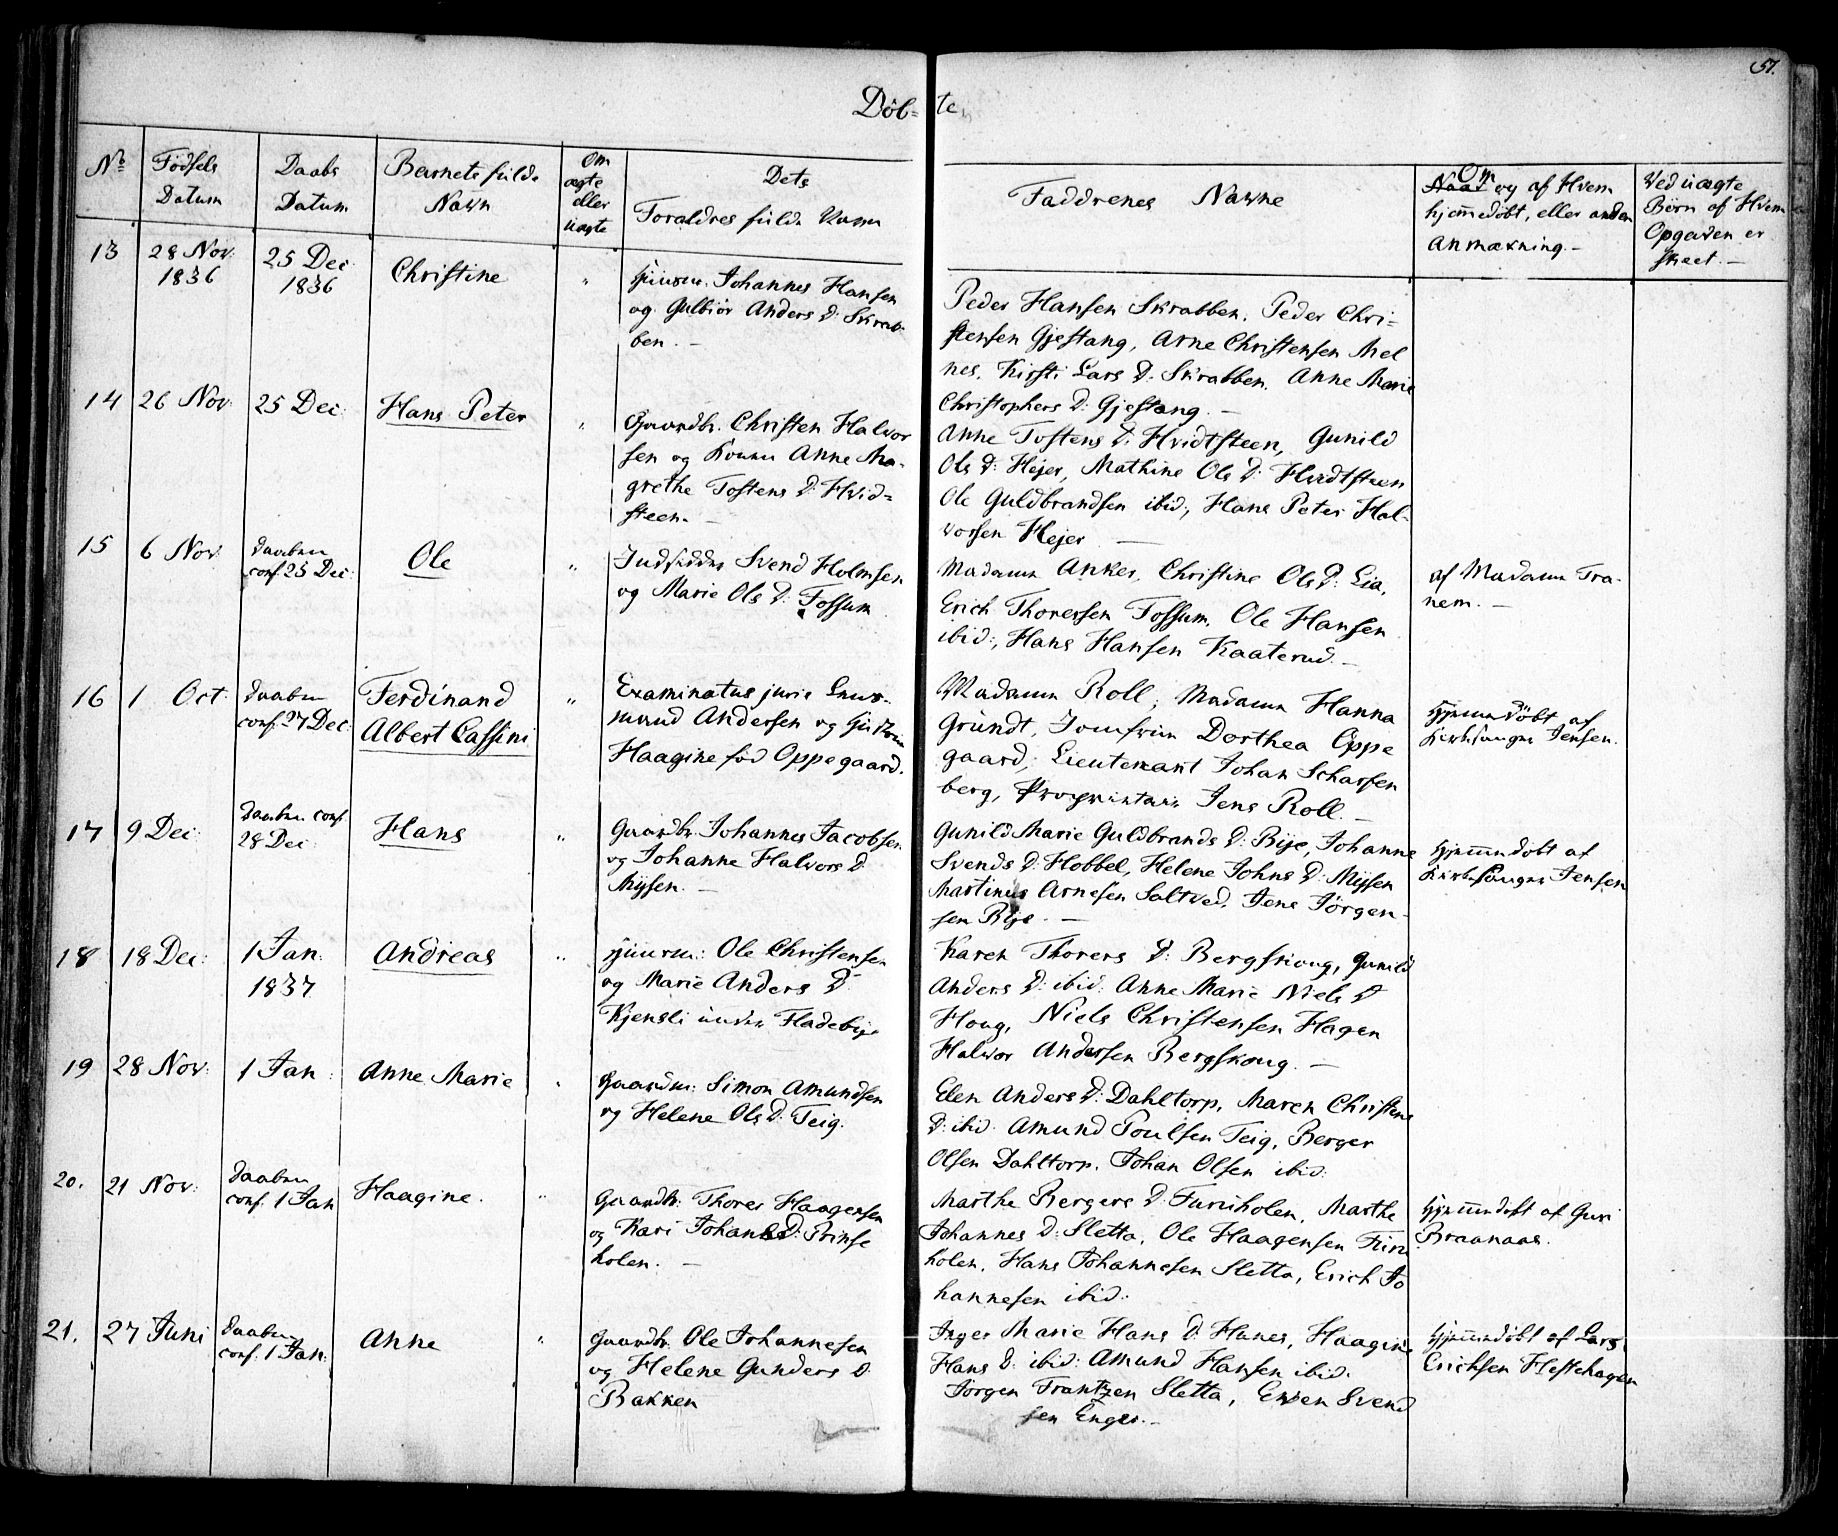 57.
Döb- te
No
Födsels Datum
Daabs Datum
Barnets fulde Navn
Om ægte eller uægte
Dets Forældres fulde Navn
Faddrenes Navne
Om og af Hvem hjemmedöbt, eller anden Anmærkning.-
Ved uægte Börn af Hvem Opgaven er skeet.-
13
28 Nov: 1836
25 Dec: 1836
Christine
"
Huusm. Johannes Hansen
og Gulbiör Anders D: Skrab-
ben.-
Peder Hansen Skrabben. Peder Chri=
stensen Gjestang, Arne Christensen Mel
nes, Kirsti Lars D: Skrabben, Anne Marie
Christophers D: Gjestang.-
14
26 Nov:
25 Dec:
Hans Peter
"
Gaardbr. Christen Halvor
sen og Konen Anne Ma-
grethe Tostens D: Hvid=
steen.-
Anne Tostens D: Hvidtsteen, Gunild
Ols D: Hejer, Mathine Ols D: Hvidtsteen
Ole Guldbrandsen ibid:, Hans Peter Hal-
vorsen Hejer -
15
6 Nov:
daaben
conf. 25 Dec:
Ole
"
Indsidder Svend Holmsen
og Marie Ols D: Fossum
Madame Anker, Christine Ols D: Lia,
Erich Thoresen Fossum, Ole Hansen
ibid:, Hans Hansen Kaaterud.-
af Madame Tra-
nem.-
16
1 Oct:
daaben
conf. 27 Dec:
Ferdinand
Albert Cassini
"
Examinatus juris Lens-
mand Andersen og
Haagine föd Oppegaard.
Madame Roll, Madame Hanna
Gründt, Jomfrue Dorthea Oppe
gaard, Lieutenant Johan Scharfen
berg, Proprietair Jens Roll.-
Hjemmedöbt af
Kirkesanger Jensen.
17
9 Dec:
daaben conf.
28 Dec:
Hans
"
Gaardbr. Johannes Jacobsen
og Johanne Halvors D:
Mysen.-
Gunild Marie Guldbrands D: Bije, Johanne
Svends D: Hobbel, Helene Johns D: Mysen
Martinus Arnesen Saltved, Jens Jörgen-
sen Bije.-
Hjemmedöbt af
Kirkesanger Jensen
18
18 Dec:
1 Jan:
1837
Andreas
"
Huusm: Ole Christensen
og Marie Anders D:
Kjensli under Fladebije
Karen Thorers D: Bergskoug, Gunild
Anders D: ibid: Anne Marie Niels D
Houg, Niels Christensen Hagen
Halvor Andersen Bergskoug.-
19
28 Nov:
1 Jan:
Anne Marie
"
Gaardm: Simon Amundsen
og Helene Ols D: Teig.
Elen Anders D: Dahltorp, Maren Christens
D: ibid. Amund Poulsen Teig, Berger
Olsen Dahltorp. Johan Olsen ibid:
20.
21 Nov:
daaben
conf. 1 Jan
Haagine.
"
Gaardbr. Thorer Haagensen
og Kari Johannes D: Prinse
holen.-
Marthe Bergers D: Furuholen, Marthe
Johannes D: Sletta, Ole Haagensen Furu
holen, Hans Johannesen Sletta, Erich Jo
hannesen ibid:
Hjemmedöbt af Guri
Braanaas.
21.
27 Juni
daaben
conf. 1 Jan:
Anne
"
Gaardbr. Ole Johannesen
og Helene Gunders D:
Bakken
Inger Marie Hans D: Hunes, Haagine
Hans D: ibid: Amund Hansen ibid.
Jörgen Frantzen Sletta, Even Svend
sen Enger.-
Hjemmedöbt af Lars
Erichsen Hestehagen